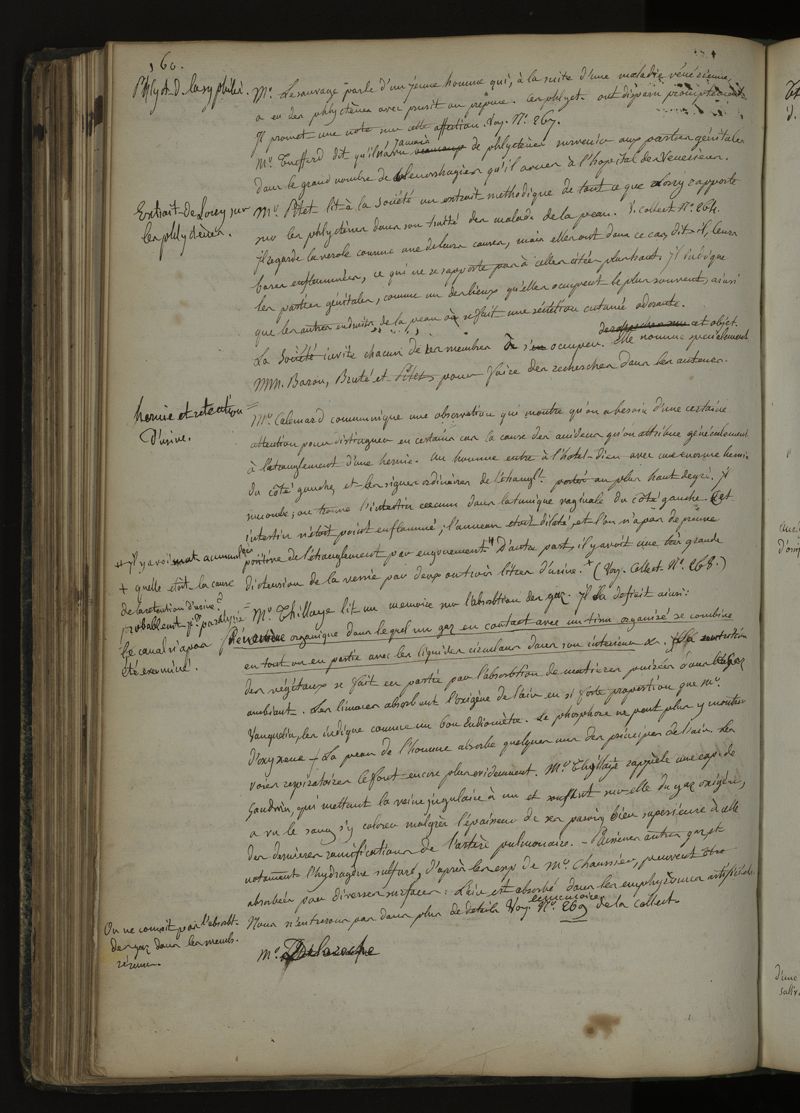 160.
Phlyct. de la syphilis.
Mr. Lesauvage parle d'un jeune homme qui, à la suite d'une maladie vénérienne,
a eu des phlyctènes avec prurit au prépuce. Ces phlyct. ont disparu promptement.
Il promet une note sur cette affection. Voy. N.° 267.
Mr. Tuffard dit qu'il n'a vu jamais de phlyctènes survenir aux parties génitales
dans le grand nombre de blennorrhagies qu'il a vues à l'hopital des Vénériens.
Extrait de Lorry sur
les phlyctènes.
Mr. Pitet lit à la Société un extrait méthodique de tout ce que Lorry rapporte
sur les phlyctènes dans son traité des malad. de la peau. V. collect. N.° 264.
Il regarde la verole comme une de leurs causes, mais elles ont dans ce cas, dit-il, leurs
bases enflammées, ce qui ne se rapporte pas à celles citées plus haut. Il indique
les parties génitales, comme un des lieux qu'elles occupent le plus souvent, ainsi
que les autres endroits de la peau où se fait une sécrétion cutanée odorante.
La Société invite chacun de ses membres à s'occuper cet objet.
Elle nomme spécialement
MM. Baron, Bruté et Pitet, pour faire des recherches dans les auteurs.
hernie et rétention
d'urine.
Mr. Calemard communique une observation qui montre qu'on a besoin d'une certaine
attention pour distinguer en certains cas la cause des accidens qu'on attribue généralement
à l'étranglement d'une hernie. Un homme entre à l'hotel-Dieu avec une énorme hernie
du côté gauche, et les signes ordinaires de l'étrangl.t portés au plus haut degré. Il
succombe; on trouve l'intestin cœcum dans la tunique vaginale du côté gauche. Cet
intestin n'étoit point enflammé; l'anneau étoit dilaté, et l'on n'a pas de preuve
positive de l'étranglement par engouement. D'autre part, il y avoit une très grande
distension de la vessie par deux ou trois litres d'urine. + (Voy. Collect. N.° 268.)
+ quelle étoit la cause
de la rétention d'urine?
probablement p.r paralysie
le canal n'a pas
été examiné.
Mr. Thillaye lit un memoire sur l'absorbtion des gaz. Il la définit ainsi:
Phénomène organique dans lequel un gaz en contact avec un tissu organisé se combine
en tout ou en partie avec les liquides circulans dans son intérieur &c.
des végétaux se fait en partie par l'absorbtion de matieres puisées dans
ambiant. Les limaces absorbent l'oxigène de l'air en si forte proportion que Mr.
Vauquelin les indique comme un bon Eudiomètre. Le phosphore ne peut plus y montrer
d'oxygene + La peau de l'homme absorbe quelques uns des principes de l'air. Les
voies respiratoires le font encore plus évidemment. Mr. Thillaye rappèle une exp. de
Goodwin, qui mettant la veine jugulaire à nu et soufflant sur elle du gaz oxigène,
a vu le sang s'y colorer malgré l'épaisseur de ses parois bien supérieure à celle
des dernières ramifications de l'artère pulmonaire. – Plusieurs autres gaz et
notamment l'hydrogène sulfuré, d'après les exp. de Mr. Chaussier, peuvent être
absorbés par diverses surfaces: L'air est absorbé dans les emphysèmes artificiels.
Nous n'entrerons pas dans plus de details Voy. N.° 269 de la collect.
On ne connait pas l'absorbt.
des gaz dans les memb.
séreuses.
Mr. Delaroche